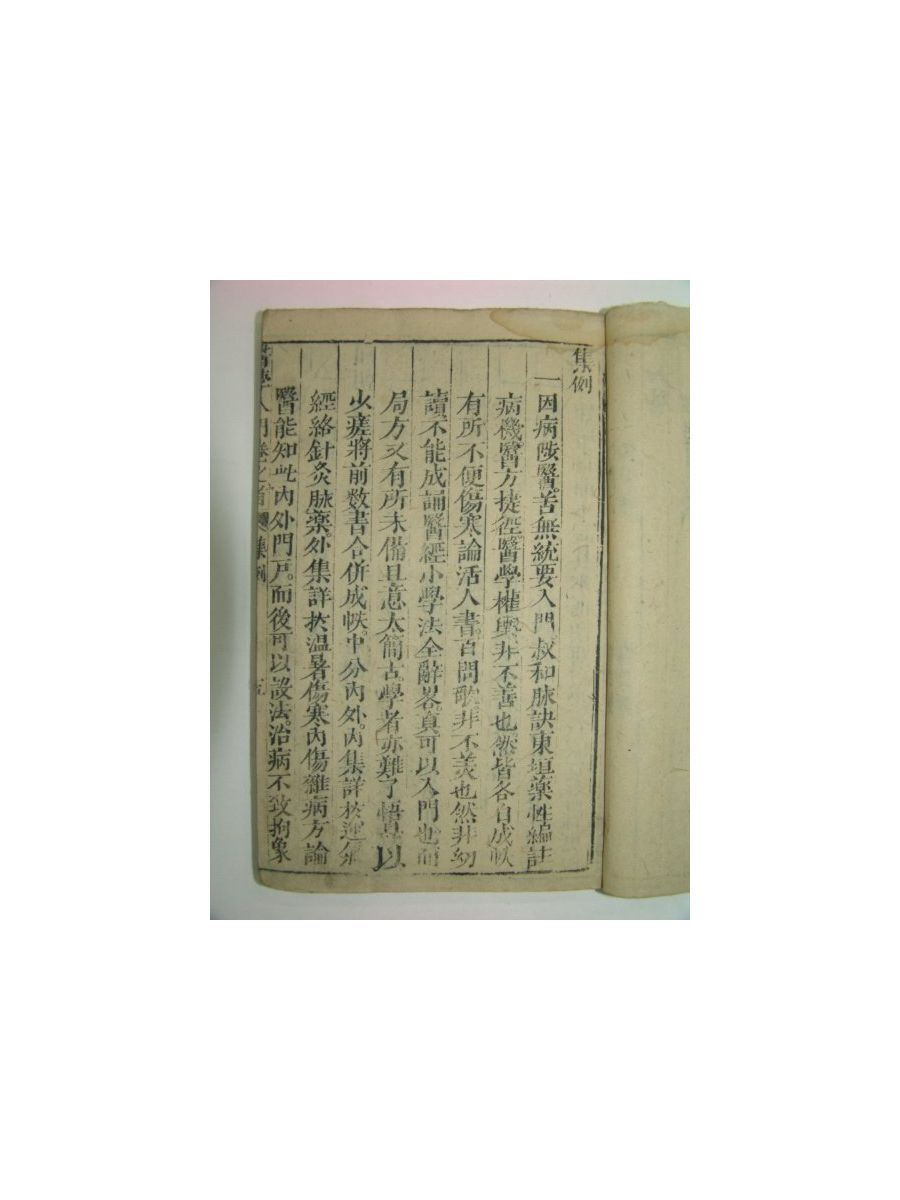 集例
一因病陟醫。苦無統要入門叔和脉訣東垣藥性編註
病機醫方捷徑。醫學權輿。非不善也然皆各自成帙
有所不便傷寒論活人書。百問歌。非不美也然非幼
讀不能成誦醫經小學法全辭畧。真可以入門也而
局方又有所未備且意太簡古。學者亦難了悟是以
少瘥將前数書合併成帙。中分內外。內集詳於運氣
經絡針灸脉藥。外集詳於温暑傷寒內傷雜病方論
醫能知此內外門戶。而後可以設法。治病不致拘象
醫學入門卷之首 集例 五